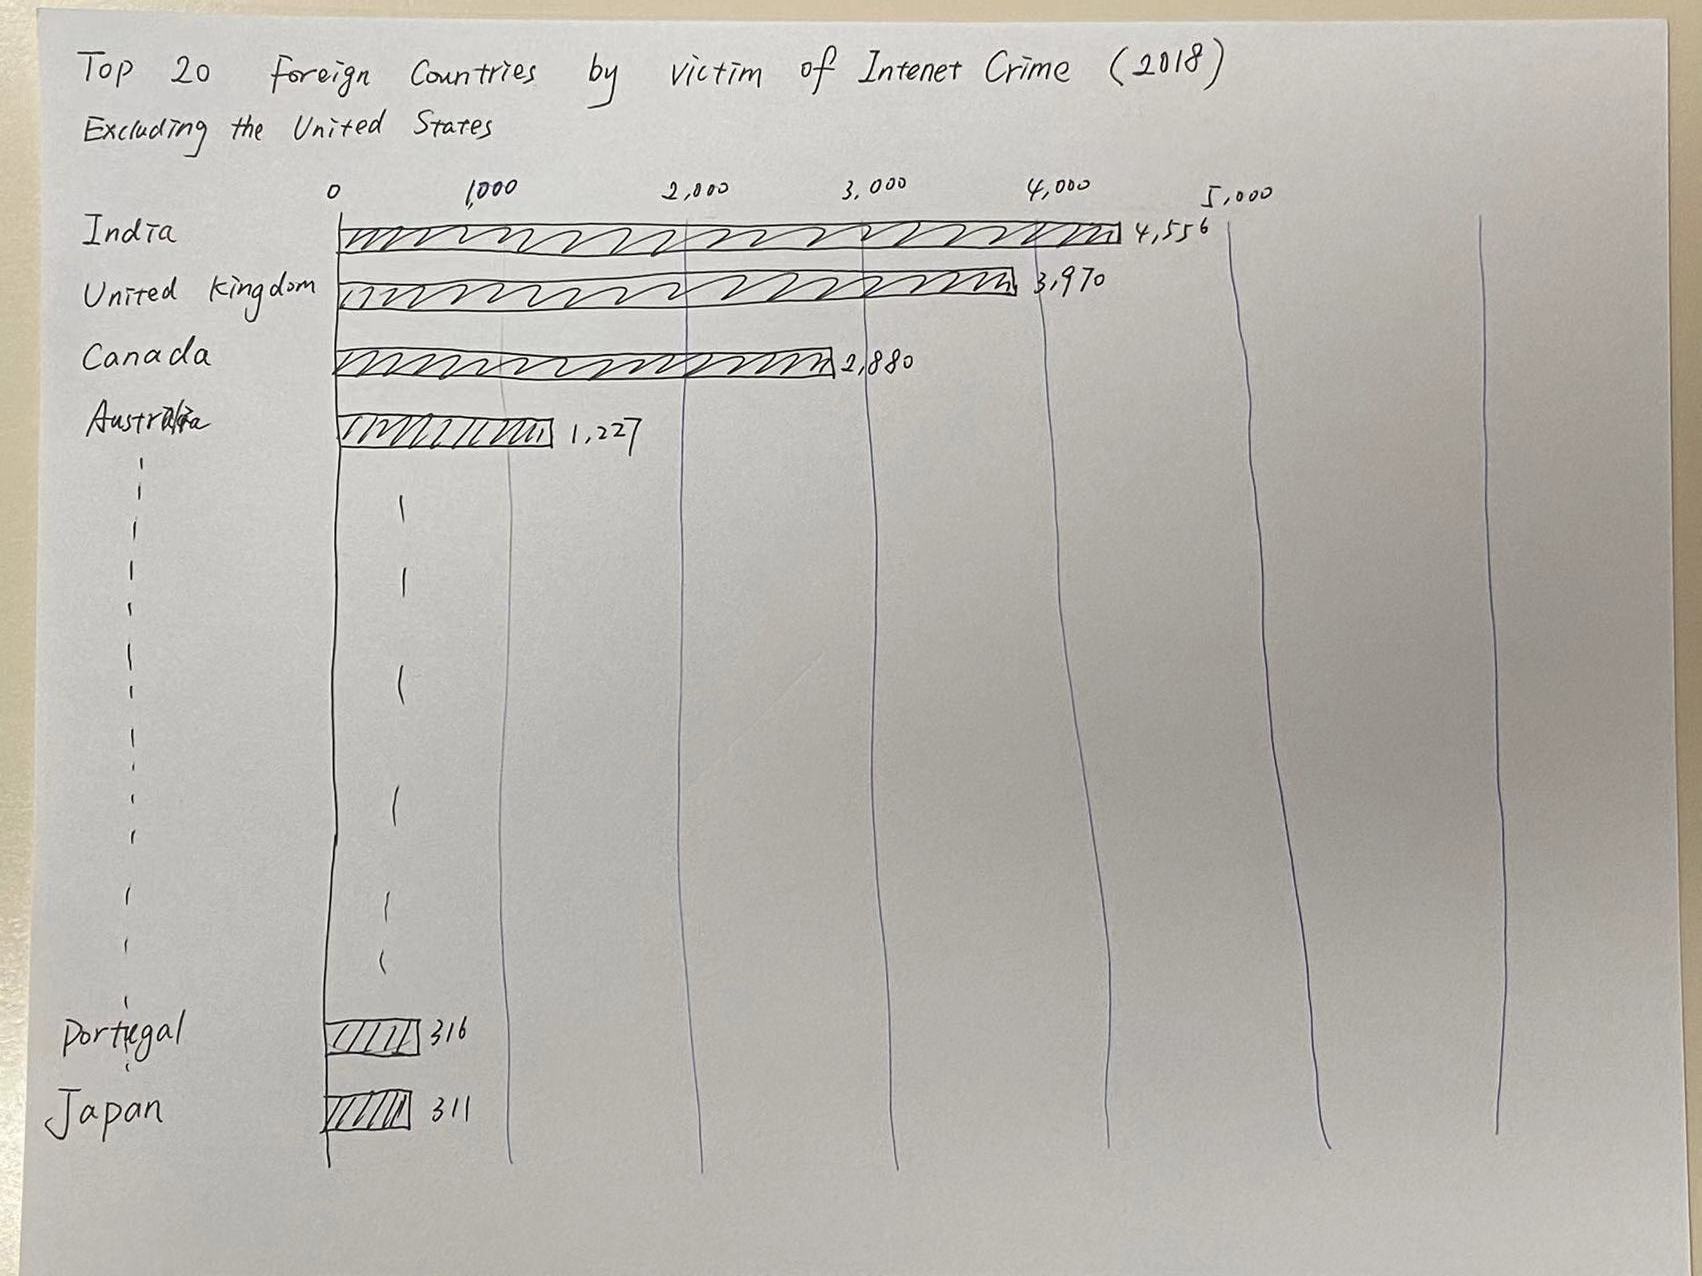 Top 20 Foreign Countries by victim of Intenet Crime (2018)
Excluding the United States
0 1,000 2,000 3,000 4,000 5,000
India 4,556
United Kingdom 3,970
Canada 2,880
Australia 1,227
Portugal 316
Japan 311